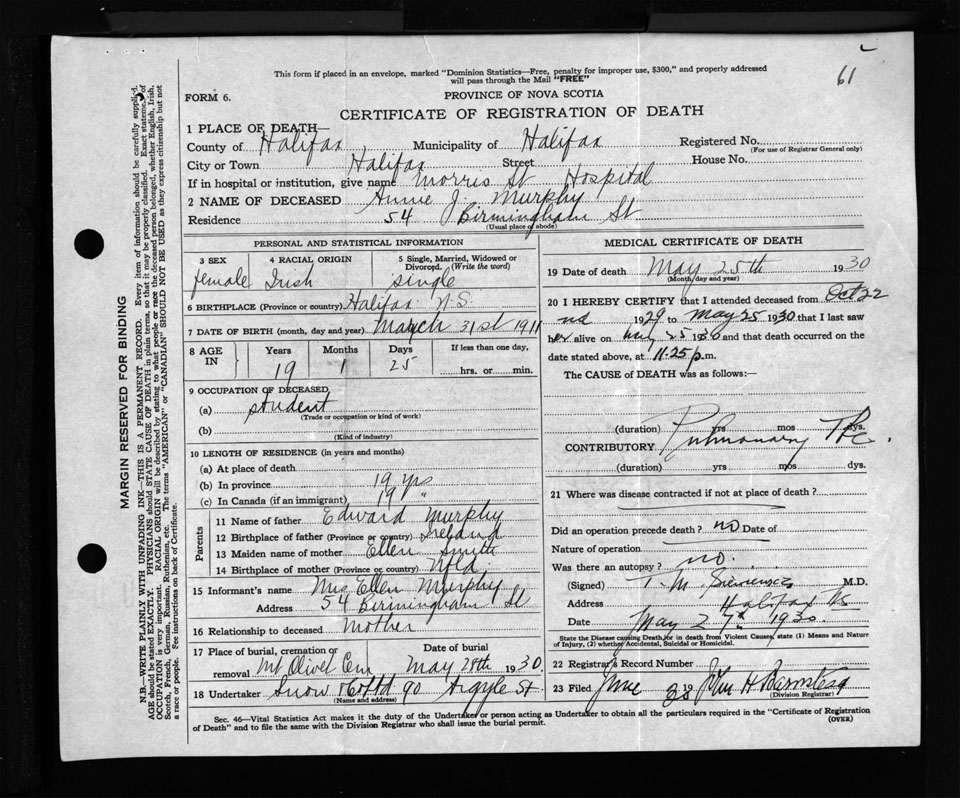 61
This form if placed in an envelope, marked "Dominion Statistics—Free, penalty for improper use, $300," and properly addressed
will pass through the Mail "FREE"
FORM 6.
PROVINCE OF NOVA SCOTIA
CERTIFICATE OF REGISTRATION OF DEATH
1 PLACE OF DEATH—
County of Halifax Municipality of Halifax Registered No.
(For use of Registrar General only)
City or Town Halifax Street House No.
If in hospital or institution, give name Morris St Hospital
2 NAME OF DECEASED Annie J. Murphy
Residence 54 Birmingham St
(Usual place of abode)
PERSONAL AND STATISTICAL INFORMATION
3 SEX female
4 RACIAL ORIGIN Irish
5 Single, Married, Widowed or Divorced. (Write the word) single
6 BIRTHPLACE (Province or country) Halifax N.S.
7 DATE OF BIRTH (month, day and year) March 31st 1911
8 AGE IN Years 19 Months 1 Days 25 If less than one day, hrs. or min.
9 OCCUPATION OF DECEASED
(a) student
(Trade or occupation or kind of work)
(b)
(Kind of industry)
10 LENGTH OF RESIDENCE (in years and months)
(a) At place of death
(b) In province 19 yrs
(c) In Canada (if an immigrant) 19 "
Parents
11 Name of father Edward Murphy
12 Birthplace of father (Province or country) Ireland
13 Maiden name of mother Ellen Smith
14 Birthplace of mother (Province or country) Nfld
15 Informant's name Mrs Ellen Murphy
Address 54 Birmingham St
16 Relationship to deceased Mother
17 Place of burial, cremation or removal Mt Olivet Cem Date of burial May 28th 1930.
18 Undertaker Snow & Co Ltd 90 Argyle St.
(Name and address)
MEDICAL CERTIFICATE OF DEATH
19 Date of death May 25th 1930
(Month, day and year)
20 I HEREBY CERTIFY that I attended deceased from Oct 22
nd 1929 to May 25 1930 that I last saw
her alive on May 25 1930 and that death occurred on the
date stated above, at 11.25 p.m.
The CAUSE of DEATH was as follows:—
(duration) yrs mos dys.
Pulmonary Tbc.
CONTRIBUTORY
(duration) yrs mos dys.
21 Where was disease contracted if not at place of death?
Did an operation precede death? no Date of
Nature of operation
Was there an autopsy? no.
(Signed) T. M. M.D.
Address Halifax NS
Date May 27th 1930.
State the Disease causing Death, or in death from Violent Causes, state (1) Means and Nature
of Injury, (2) whether Accidental, Suicidal or Homicidal.
22 Registrar's Record Number
23 Filed June 1930 John H Barnstead
(Division Registrar)
Sec. 46—Vital Statistics Act makes it the duty of the Undertaker or person acting as Undertaker to obtain all the particulars required in the "Certificate of Registration
of Death" and to file the same with the Division Registrar who shall issue the burial permit.
(OVER)
MARGIN RESERVED FOR BINDING
N.B.—WRITE PLAINLY WITH UNFADING INK—THIS IS A PERMANENT RECORD. Every item of information should be carefully supplied.
AGE should be stated EXACTLY. PHYSICIANS should STATE CAUSE OF DEATH in plain terms, so that it may be properly classified. Exact statement of
OCCUPATION is very important. RACIAL ORIGIN will be described by stating to what people or race the deceased person belonged, whether English, Irish,
Scotch, French, German, Russian, Ruthenian, etc. The terms "AMERICAN" or "CANADIAN" SHOULD NOT BE USED as they express citizenship but not
a race or people. See instructions on back of Certificate.